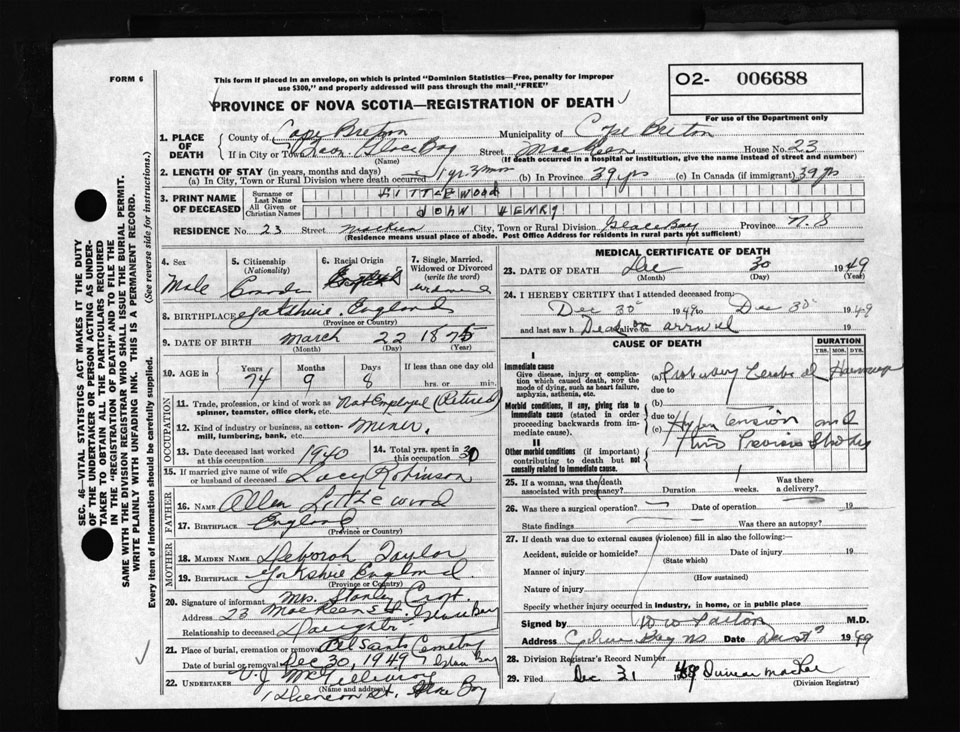 FORM 6
This form if placed in an envelope, on which is printed "Dominion Statistics—Free, penalty for improper
use $300," and properly addressed will pass through the mail "FREE"
PROVINCE OF NOVA SCOTIA—REGISTRATION OF DEATH
O2- 006688
For use of the Department only
SEC. 46—VITAL STATISTICS ACT MAKES IT THE DUTY
OF THE UNDERTAKER OR PERSON ACTING AS UNDER-
TAKER TO OBTAIN ALL THE PARTICULARS REQUIRED
IN THE "REGISTRATION OF DEATH" AND TO FILE THE
SAME WITH THE DIVISION REGISTRAR WHO SHALL ISSUE THE BURIAL PERMIT.
WRITE PLAINLY WITH UNFADING INK. THIS IS A PERMANENT RECORD.
Every item of information should be carefully supplied. (See reverse side for instructions.)
1. PLACE OF DEATH
County of Cape Breton Municipality of Cape Breton
If in City or Town Glace Bay Street MacKeen House No. 23
(Name) (If death occurred in a hospital or institution, give the name instead of street and number)
2. LENGTH OF STAY (in years, months and days)
(a) In City, Town or Rural Division where death occurred 1 yr. 3 mos (b) In Province 39 yrs (c) In Canada (if immigrant) 39 yrs
3. PRINT NAME OF DECEASED
Surname or Last Name LITTLEWOOD
All Given or Christian Names JOHN HENRY
RESIDENCE No. 23 Street MacKeen City, Town or Rural Division Glace Bay Province N.S
(Residence means usual place of abode. Post Office Address for residents in rural parts not sufficient)
4. Sex
Male
5. Citizenship
(Nationality)
6. Racial Origin
English
7. Single, Married, Widowed or Divorced
(write the word)
8. BIRTHPLACE Yorkshire, England
(Province or Country)
9. DATE OF BIRTH March 22 1875
(Month) (Day) (Year)
10. AGE in
Years Months Days If less than one day old
74 9 8 hrs. or min.
OCCUPATION
11. Trade, profession, or kind of work as spinner, teamster, office clerk, etc. Not Employed (Retired)
12. Kind of industry or business, as cotton-mill, lumbering, bank, etc. Miner
13. Date deceased last worked at this occupation 1940
14. Total yrs. spent in this occupation 30
15. If married give name of wife or husband of deceased Lucy Robinson
FATHER
16. NAME Allen Littlewood
17. BIRTHPLACE England
(Province or Country)
MOTHER
18. MAIDEN NAME Deborah Taylor
19. BIRTHPLACE Yorkshire England
(Province or Country)
20. Signature of informant Mrs. Stanley
Address 23 MacKeen St. Glace Bay
Relationship to deceased Daughter
21. Place of burial, cremation or removal Cemetery
Date of burial or removal Dec 30, 1949 Glace Bay
22. UNDERTAKER V.J. McGillivray
(Name and address)
St. Glace Bay
MEDICAL CERTIFICATE OF DEATH
23. DATE OF DEATH Dec 30 1949
(Month) (Day)
24. I HEREBY CERTIFY that I attended deceased from
Dec 30 1949 to Dec 30 1949
and last saw h alive on Dead on arrival 19
CAUSE OF DEATH
DURATION
YRS. MOS. DYS.
I
Immediate cause
Give disease, injury or complication which caused death, NOT the mode of dying, such as heart failure, asphyxia, asthenia, etc.
(a) Probably Cerebral Haemorrhage
due to
Morbid conditions, if any, giving rise to immediate cause (stated in order proceeding backwards from immediate cause).
(b)
due to
(c) Hypertension and
Previous Strokes
II
Other morbid conditions (if important) contributing to death but not causally related to immediate cause.
25. If a woman, was the death associated with pregnancy? Duration weeks. Was there a delivery?
26. Was there a surgical operation? Date of operation 19
State findings Was there an autopsy?
27. If death was due to external causes (violence) fill in also the following:—
Accident, suicide or homicide? Date of injury 19
(State which)
Manner of injury
(How sustained)
Nature of injury
Specify whether injury occurred in industry, in home, or in public place
Signed by W W Patton M.D.
Address Bay NS Date 1949
28. Division Registrar's Record Number
29. Filed Dec 31 1949
(Division Registrar)